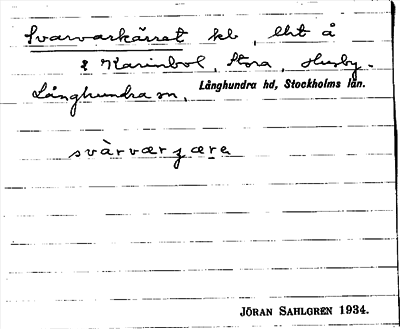 Svarvarkärret kl, Uht å
& Karinbol, Stora, Husby-
Långhundra sn, Långhundra hd, Stockholms län.
svàrværʒære
JÖRAN SAHLGREN 1934.